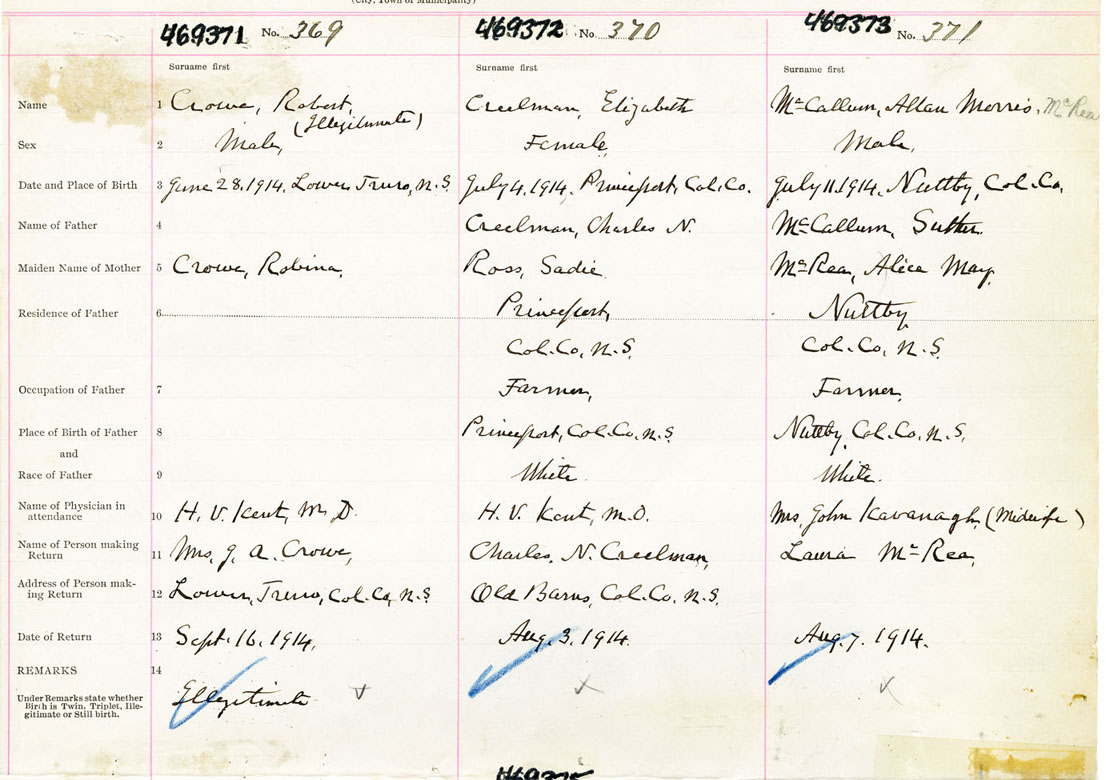 (City, Town or Municipality)
469371 No. 369 469372 No. 370 469373 No. 371
Suruame first Surname first Surname first
Name 1 Crowe, Robert, Creelman, Elizabeth McCallum, Allan Morris. McRea
(Illegitimate)
Sex 2 Male, Female, Male,
Date and Place of Birth 3 June 28, 1914, Lower Truro, N.S. July 4, 1914, Princeport, Col. Co. July 11, 1914, Nuttby, Col. Co,
Name of Father 4 Creelman, Charles N. McCallum,
Maiden Name of Mother 5 Crowe, Robina, Ross, Sadie McRea, Alice May,
Residence of Father 6 Princeport, Nuttby
Col. Co, N.S. Col. Co, N.S.
Occupation of Father 7 Farmer, Farmer,
Place of Birth of Father 8 Princeport, Col. Co. N.S. Nuttby, Col. Co, N.S.
and
Race of Father 9 White. White.
Name of Physician in
attendance 10 H. V. Kent, M.D. H. V. Kent, M.D. Mrs John Kavanagh (Midwife)
Name of Person making
Return 11 Mrs, J. A. Crowe, Charles, N. Creelman, Laura McRea,
Address of Person mak-
ing Return 12 Lower, Truro, Col. Co, N.S. Old Barns, Col. Co, N.S.
Date of Return 13 Sept. 16, 1914, Aug. 3, 1914. Aug. 7, 1914.
REMARKS 14
Under Remarks state whether
Birth is Twin, Triplet, Ille-
gitimate or Still birth.
Illegitimate